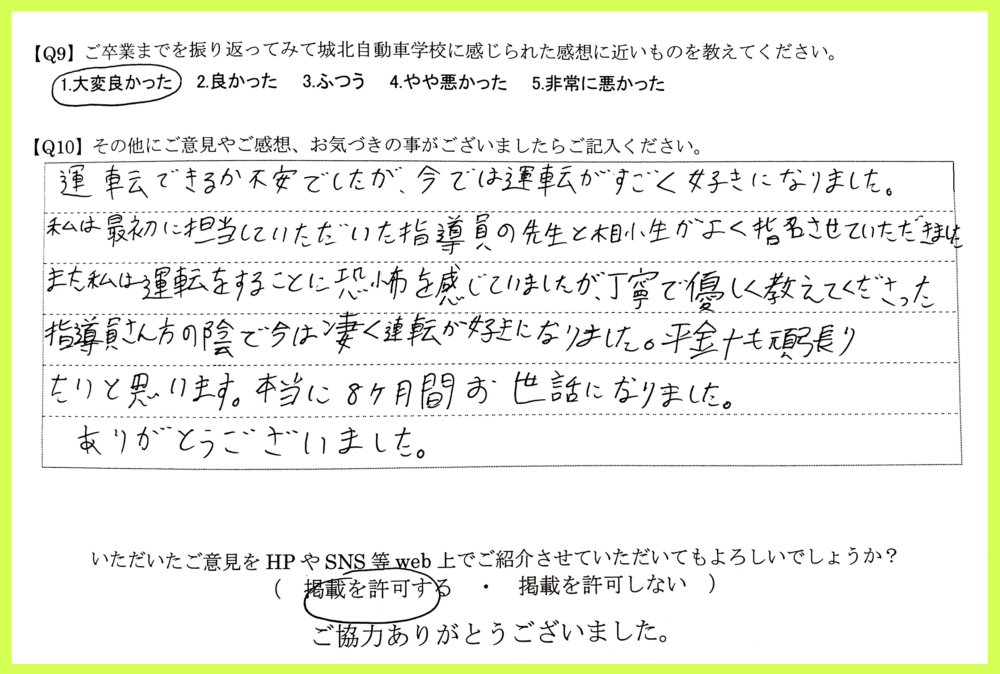 【Q9】ご卒業までを振り返ってみて城北自動車学校に感じられた感想に近いものを教えてください。
1.大変良かった 2.良かった 3.ふつう 4.やや悪かった 5.非常に悪かった
【Q10】その他にご意見やご感想、お気づきの事がございましたらご記入ください。
運転できるか不安でしたが、今では運転がすごく好きになりました。
私は最初に担当していただいた指導員の先生と相性がよく指名させていただきました
また私は運転をすることに恐怖を感じていましたが、丁寧で優しく教えてくださった
指導員さん方の陰で今は凄く運転が好きになりました。 も頑張り
たいと思います。本当に8ヶ月間お世話になりました。
ありがとうございました。
いただいたご意見をHPやSNS等web上でご紹介させていただいてもよろしいでしょうか？
( 掲載を許可する ・ 掲載を許可しない )
ご協力ありがとうございました。